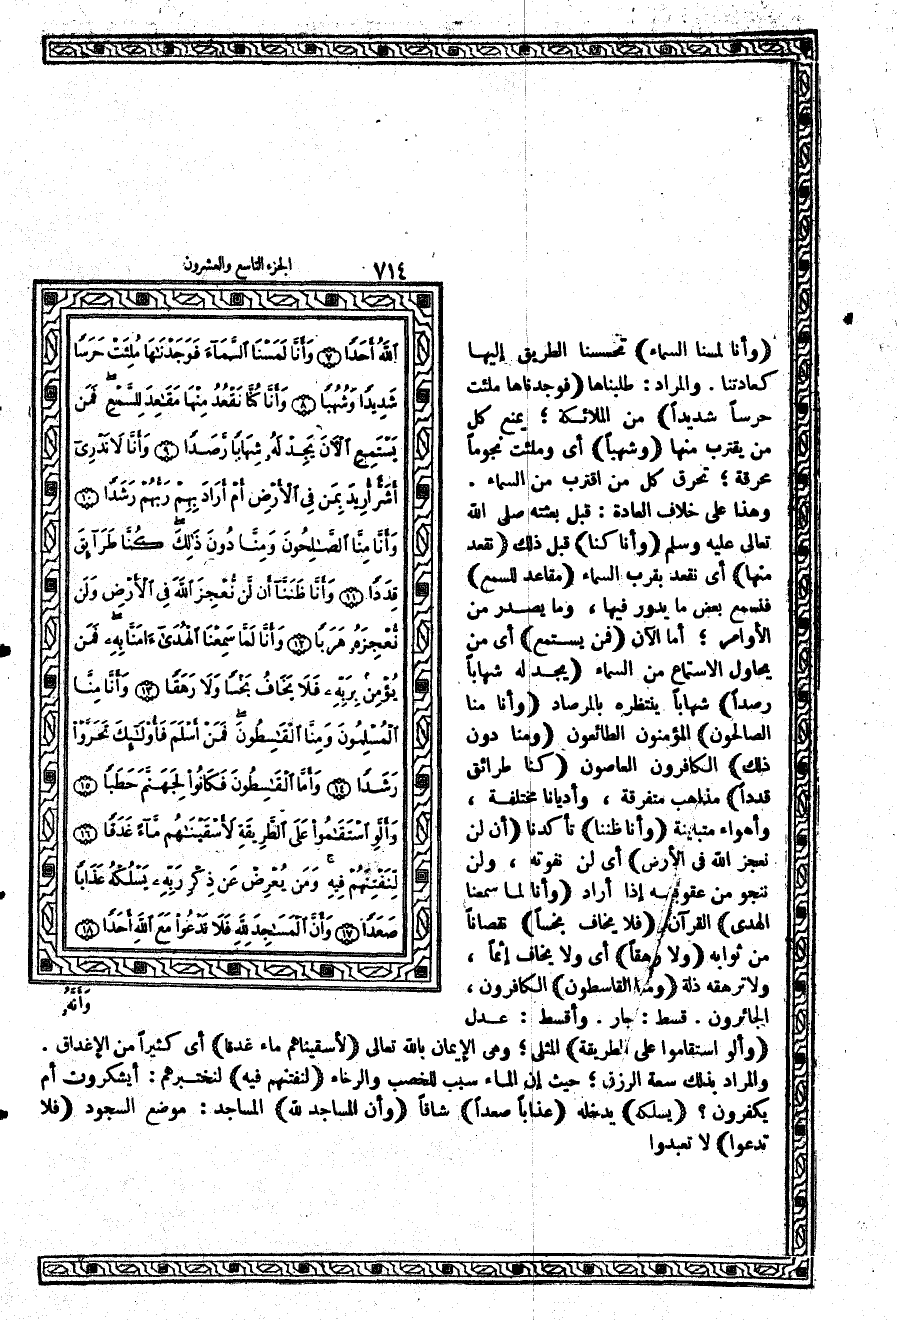 الجزء التاسع والعشرون
٧١٤
ٱللَّهُ أَحَدًا ٧ وَأَنَّا لَمَسْنَا ٱلسَّمَآءَ فَوَجَدْنَٰهَا مُلِئَتْ حَرَسًا
شَدِيدًا وَشُهُبًا ٨ وَأَنَّا كُنَّا نَقْعُدُ مِنْهَا مَقَٰعِدَ لِلسَّمْعِ ۖ فَمَن
يَسْتَمِعِ ٱلْأَنَ يَجِدْ لَهُۥ شِهَابًا رَّصَدًا ٩ وَأَنَّا لَا نَدْرِىٓ
أَشَرٌّ أُرِيدَ بِمَن فِى ٱلْأَرْضِ أَمْ أَرَادَ بِهِمْ رَبُّهُمْ رَشَدًا ١٠
وَأَنَّا مِنَّا ٱلصَّٰلِحُونَ وَمِنَّا دُونَ ذَٰلِكَ ۖ كُنَّا طَرَآئِقَ
قِدَدًا ١١ وَأَنَّا ظَنَنَّآ أَن لَّن نُّعْجِزَ ٱللَّهَ فِى ٱلْأَرْضِ وَلَن
نُّعْجِزَهُۥ هَرَبًا ١٢ وَأَنَّا لَمَّا سَمِعْنَا ٱلْهُدَىٰٓ ءَامَنَّا بِهِۦ ۖ فَمَن
يُؤْمِنۢ بِرَبِّهِۦ فَلَا يَخَافُ بَخْسًا وَلَا رَهَقًا ١٣ وَأَنَّا مِنَّا
ٱلْمُسْلِمُونَ وَمِنَّا ٱلْقَٰسِطُونَ ۖ فَمَنْ أَسْلَمَ فَأُو۟لَٰٓئِكَ تَحَرَّوْا۟
رَشَدًا ١٤ وَأَمَّا ٱلْقَٰسِطُونَ فَكَانُوا۟ لِجَهَنَّمَ حَطَبًا ١٥
وَأَلَّوِ ٱسْتَقَٰمُوا۟ عَلَى ٱلطَّرِيقَةِ لَأَسْقَيْنَٰهُم مَّآءً غَدَقًا ١٦
لِّنَفْتِنَهُمْ فِيهِ ۚ وَمَن يُعْرِضْ عَن ذِكْرِ رَبِّهِۦ يَسْلُكْهُ عَذَابًا
صَعَدًا ١٧ وَأَنَّ ٱلْمَسَٰجِدَ لِلَّهِ فَلَا تَدْعُوا۟ مَعَ ٱللَّهِ أَحَدًا ١٨
وَأَنَّهُۥ
(وأنا لمسنا السماء) تحسسنا الطريق إليها
كعادتنا . والمراد : طلبناها (فوجدناها ملئت
حرساً شديداً) من الملائكة ؛ يمنع كل
من يقترب منها (وشهباً) أى وملئت نجوماً
محرقة ؛ تحرق كل من اقترب من السماء .
وهذا على خلاف العادة : قبل بعثته صلى الله
تعالى عليه وسلم (وأنا كنا) قبل ذلك (نقعد
منها) أى نقعد بقرب السماء (مقاعد للسمع)
فنسمع بعض ما يدور فيها ، وما يصدر من
الأوامر ؛ أما الآن (فمن يستمع) أى من
يحاول الاستماع من السماء (يجد له شهاباً
رصداً) شهاباً ينتظره بالمرصاد (وأنا منا
الصالحون) المؤمنون الطائعون (ومنا دون
ذلك) الكافرون العاصون (كنا طرائق
قدداً) مذاهب متفرقة ، وأديانا مختلفة ،
وأهواء متباينة (وأنا ظننا) تأكدنا (أن لن
نعجز الله فى الأرض) أى لن نفوته ، ولن
ننجو من عقوبته إذا أراد (وأنا لما سمعنا
الهدى) القرآن (فلا يخاف بخساً) نقصاناً
من ثوابه (ولا رهقاً) أى ولا يخاف إثماً ،
ولا ترهقه ذلة (ومنا القاسطون) الكافرون ،
الجائرون . قسط : جار . وأقسط : عدل
(وألو استقاموا على الطريقة) المثلى ؛ وهى الإيمان بالله تعالى (لأسقيناهم ماء غدقا) أى كثيراً من الإغداق .
والمراد بذلك سعة الرزق ؛ حيث إن الماء سبب للخصب والرخاء (لنفتنهم فيه) لنختبرهم : أيشكرون أم
يكفرون ؟ (يسلكه) يدخله (عذاباً صعداً) شاقاً (وأن المساجد لله) المساجد : موضع السجود (فلا
تدعوا) لا تعبدوا